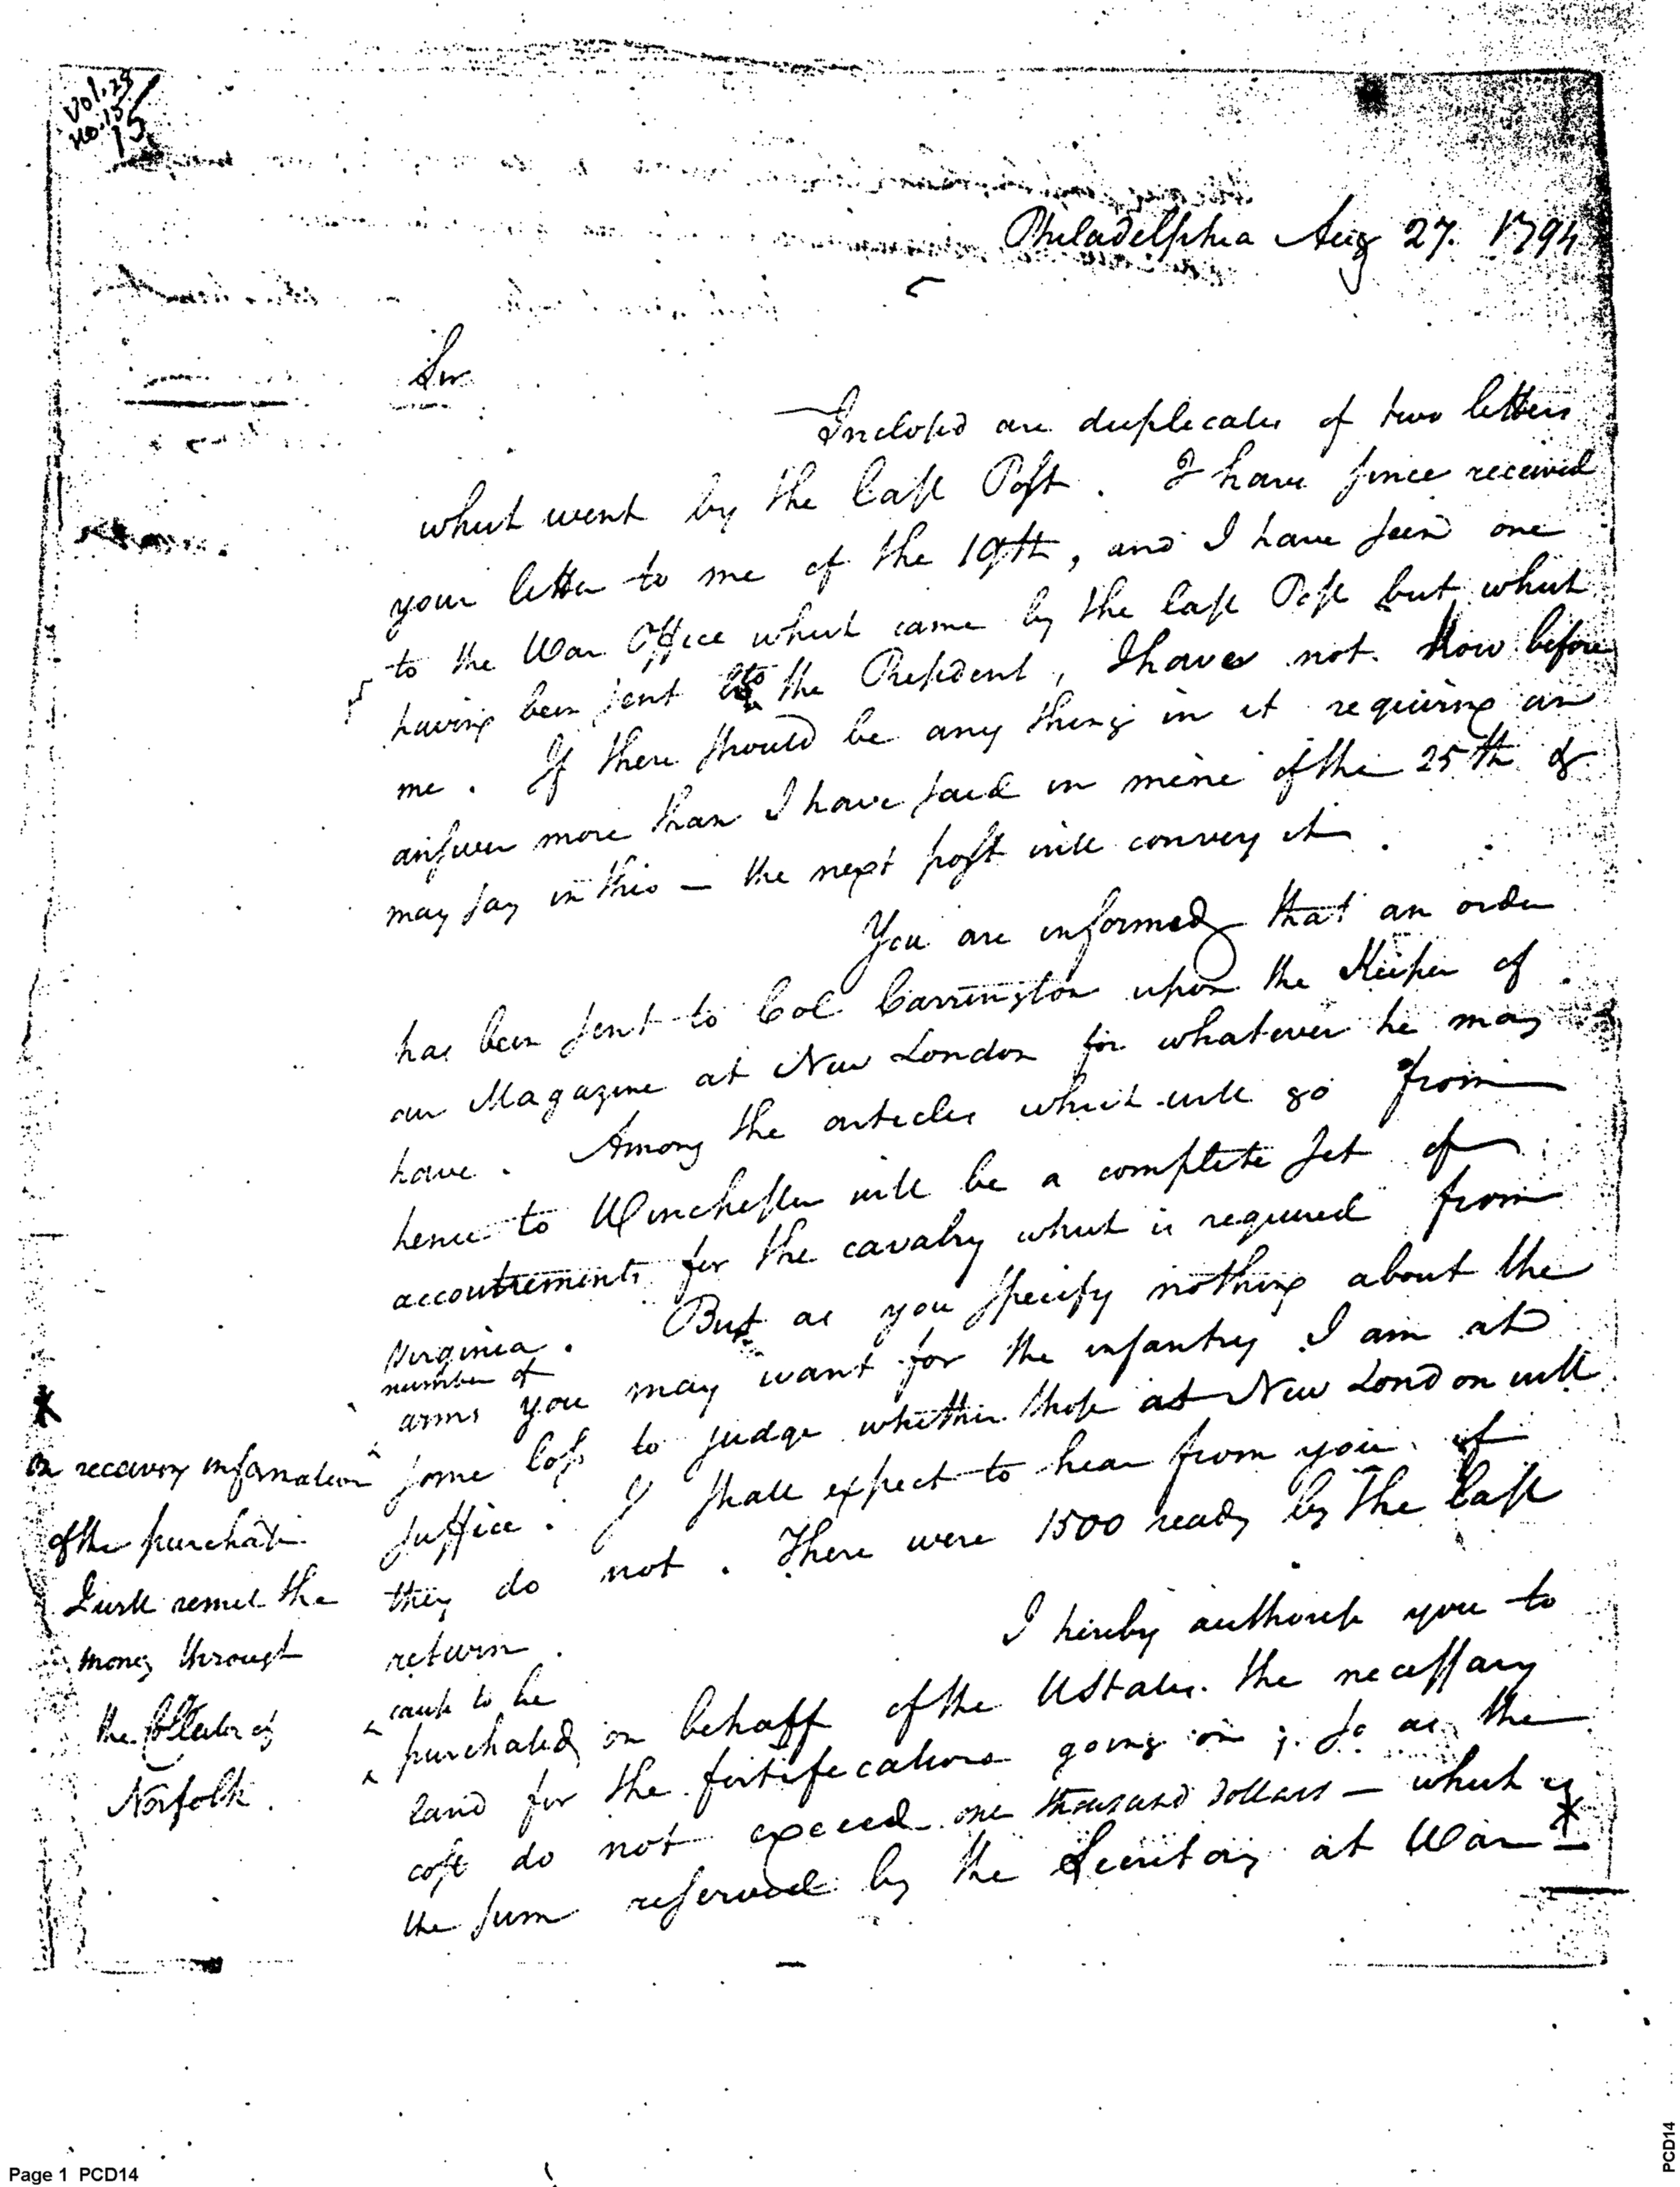 Vol. 23
no. 15
15
Philadelphia Aug 27. 1794
Sir
Inclosed are duplicates of two letters
which went by the last Post. I have since received
your letter to me of the 19th, and I have seen one
to the War Office which came by the last Post but which
having been sent to the President, I have not now before
me. If there should be any thing in it requiring an
answer more than I have said in mine of the 25th or
may say in this — the next post will convey it.
You are informed that an order
has been sent to Col Carrington upon the Keeper of
our Magazine at New London for whatever he may
have. Among the articles which will go from
hence to Winchester will be a complete set of
accoutrements for the cavalry which is required from
Virginia. But as you specify nothing about the
number of
arms you may want for the infantry I am at
some loss to judge whether those at New London will
suffice. I shall expect to hear from you if
they do not. There were 1500 ready by the last
return.
I hereby authorise you to
cause to be
purchased on behalf of the UStates the necessary
land for the fortifications going on; so as the
cost do not exceed one thousand dollars — which is
the sum reserved by the Secretary at War *
*
On receiving information
of the purchase
I will remit the
money through
the Collector of
Norfolk.
Page 1 PCD14
PCD14